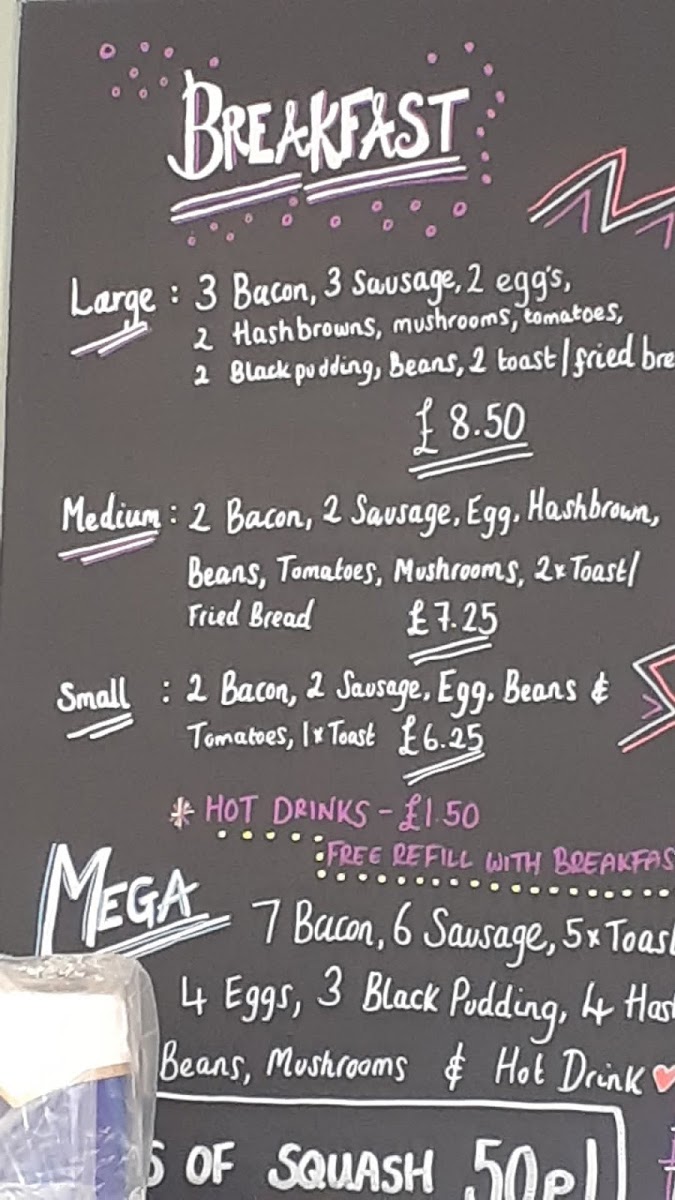 BREAKFAST
Large : 3 Bacon, 3 Sausage, 2 egg's,
2 Hashbrowns, mushrooms, tomatoes,
2 Black pudding, Beans, 2 toast/fried bre
£8.50
Medium : 2 Bacon, 2 Sausage, Egg, Hashbrown,
Beans, Tomatoes, Mushrooms, 2x Toast/
Fried Bread £7.25
Small : 2 Bacon, 2 Sausage, Egg, Beans &
Tomatoes, 1x Toast £6.25
* HOT DRINKS - £1.50
FREE REFILL WITH BREAKFAS
MEGA 7 Bacon, 6 Sausage, 5x Toast
4 Eggs, 3 Black Pudding, 4 Has
Beans, Mushrooms & Hot Drink
S OF SQUASH 50p!